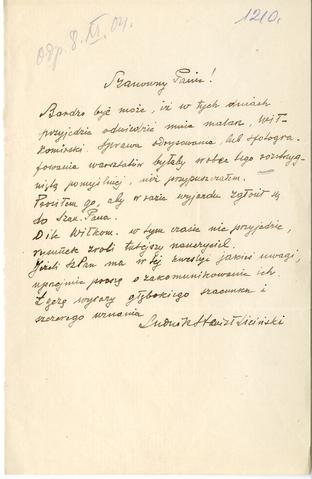 odp. 8. XI. 04.
1210.
Szanowny Panie!
Bardzo być może, iż w tych dniach
przyjedzie odwiedzić mnie malarz, Wit-
komirski. Sprawa odrysowania, lub sfotogra-
fowania warsztatów byłaby wobec tego rozstrzyg-
niętą pomyślniej, niż przypuszczałem.
Prosiłem go, aby w razie wyjazdu zgłosił się
do Szan. Pana.
O ile Witkom. w tym czasie nie przyjedzie,
rysunek zrobi tutejszy nauczyciel.
Jeżeli Sz Pan ma w tej kwestyi jakieś uwagi,
uprzejmie proszę o zakomunikowanie ich.
Łączę wyrazy głębokiego szacunku i
szczerego uznania
Ludwik Stanisł Liciński